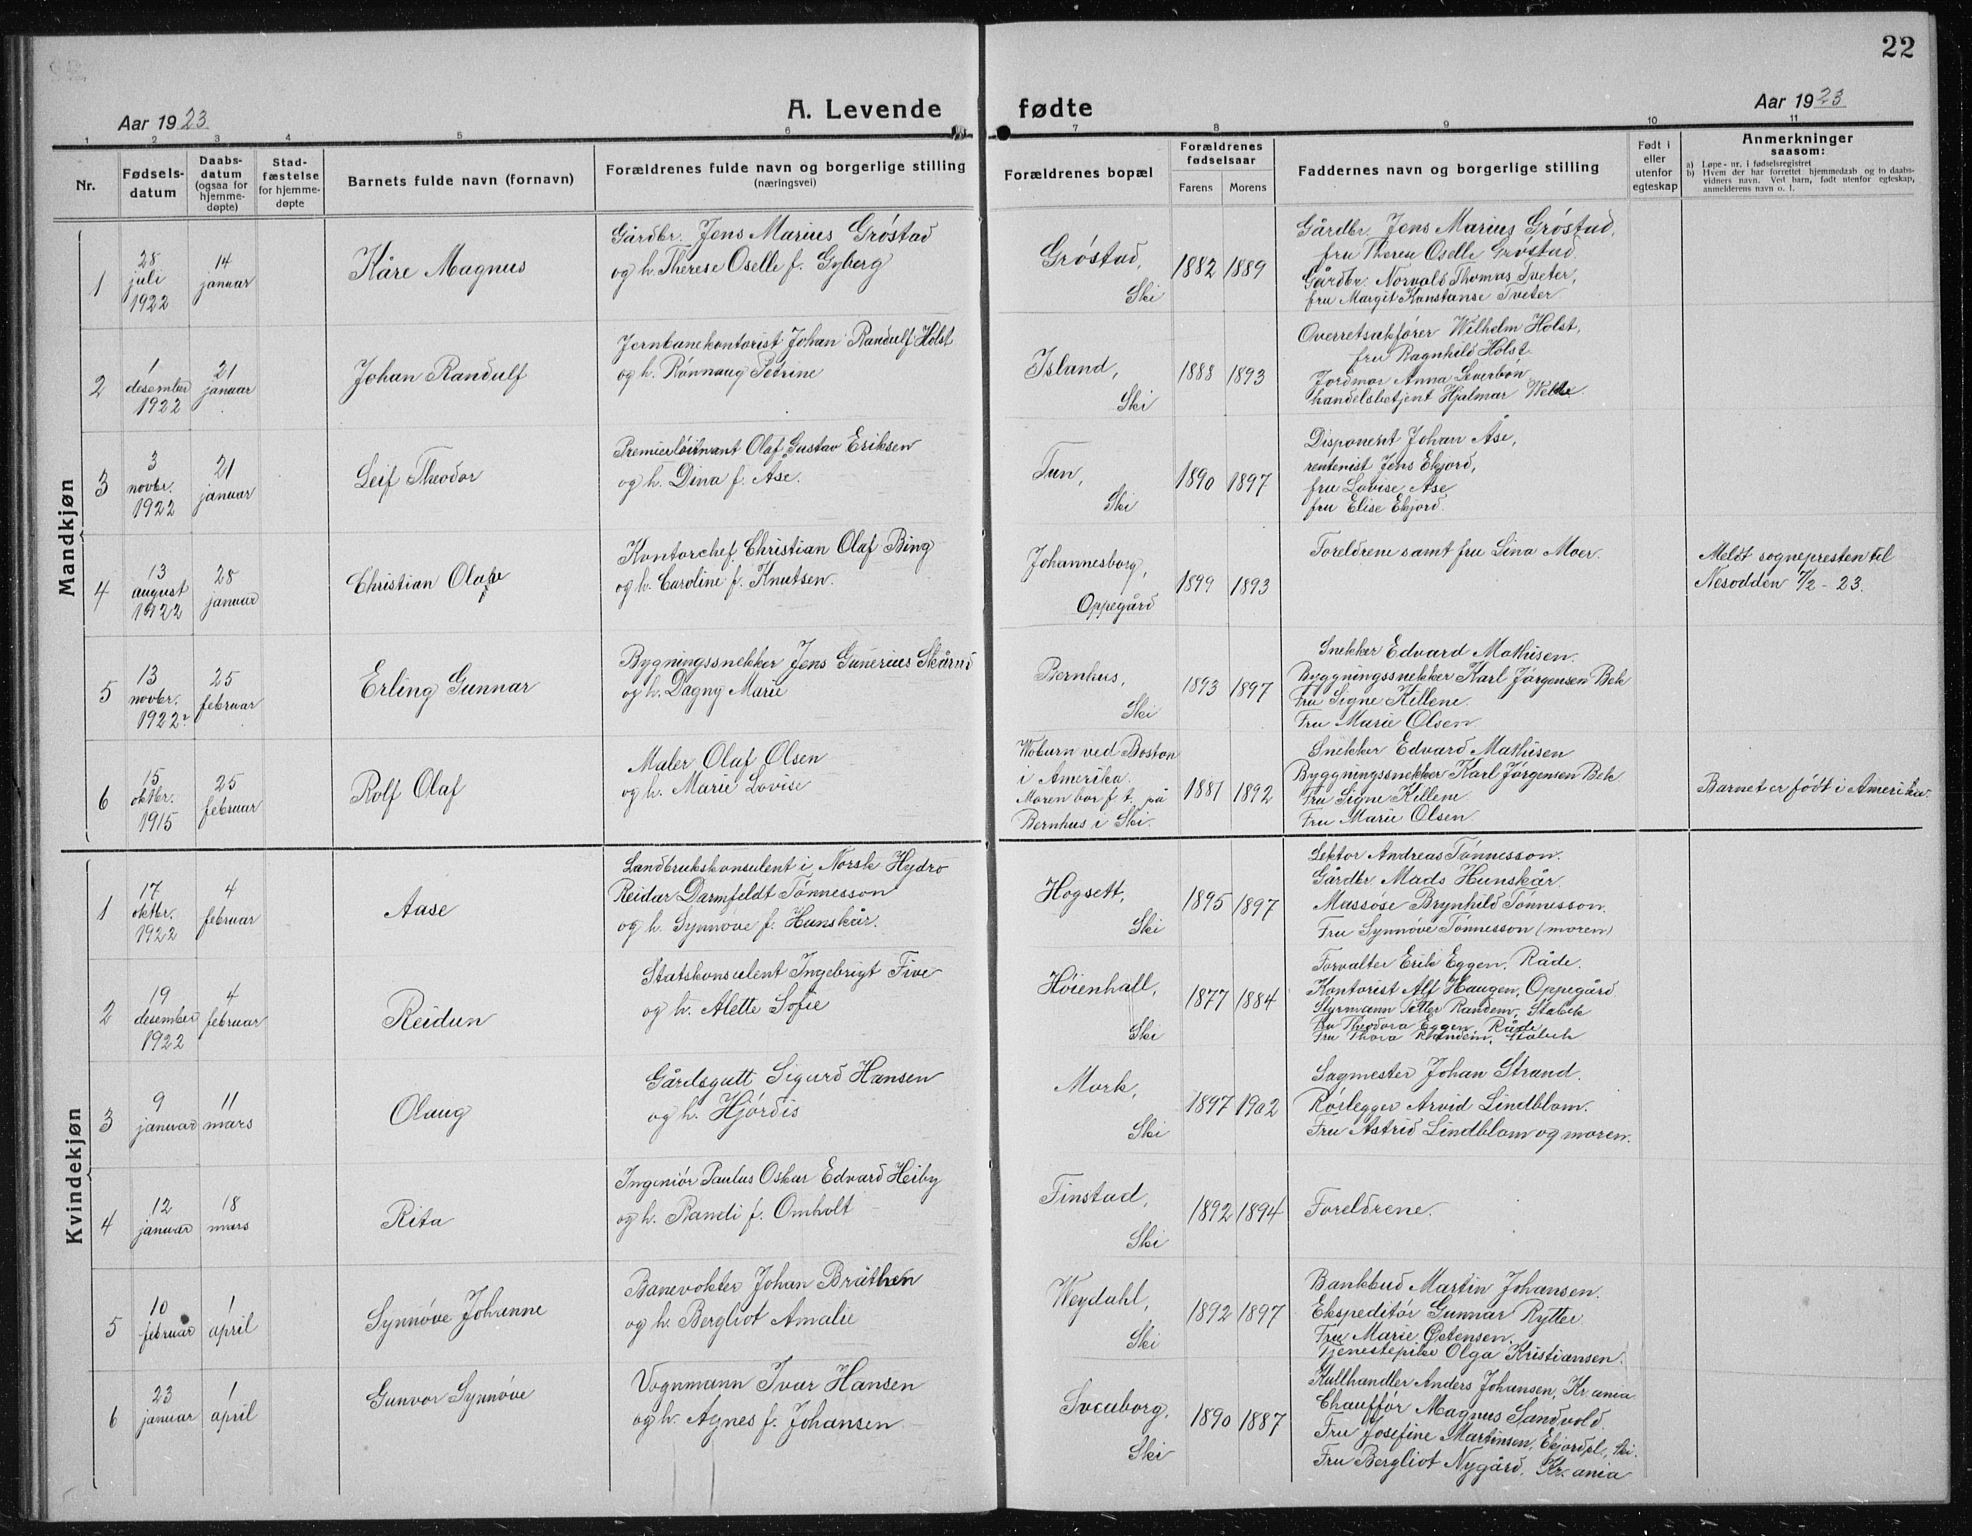 22
Aar 1923 A. Levende fødte Aar 1923
1 2 3 4 5 6 7 8 9 10 11
Nr.
Fødsels-
datum
Daabs-
datum
(ogsaa for
hjemme-
døpte)
Stad-
fæstelse
for hjemme-
døpte
Barnets fulde navn (fornavn)
Forældrenes fulde navn og borgerlige stilling
(næringsvei)
Forældrenes bopæl
Forældrenes
fødselsaar
Farens Morens
Faddernes navn og borgerlige stilling
Født i
eller
utenfor
egteskap
Anmerkninger
saasom:
a) Løpe-nr. i fødselsregistret
b) Hvem der har forrettet hjemmedaab og to daabs-
vidners navn. Ved barn, født utenfor egteskap,
anmelderens navn o. l.
Mandkjøn
1
28
juli
1922
14
januar
Kåre Magnus
Gårdbr. Jens Marius Grøstad
og h. Therese Oselle f. Gyberg
Grøstad,
Ski
1882 1889
Gårdbr. Jens Marius Grøstad,
fru Therese Oselle Grøstad.
Gårdbr. Norvald Thomas Tveter,
fru Margit Konstanse Tveter.
2
1
desember
1922
21
januar
Johan Randulf
Jernbanekontorist Johan Randulf Holst
og h. Rønnaug Petrine
Island,
Ski
1888 1893
Overretsakfører Wilhelm Holst,
fru Ragnhild Holst.
Jordmor Anna
handelsbetjent Hjalmar
3
3
novbr.
1922
21
januar
Leif Theodor
Premierløitnant Olaf Gustav Eriksen
og h. Dina f. Åse.
Tun,
Ski
1890 1897
Disponent Johan Åse,
rentenist Jens Ekjord,
fru Lovise Åse
fru Elise Ekjord.
4
13
august
1922
28
januar
Christian Olav
Kontorchef Christian Olaf Bing
og h. Caroline f. Knutsen.
Johannesborg,
Oppegård
1899 1893
Foreldrene samt fru Lina Moer.
Meldt sognepresten til
Nesodden 7/2 - 23.
5
13
novbr.
1922
25
februar
Erling Gunnar
Bygningssnekker Jens Gunerius Skårud
og h. Dagny Marie
Bernhus,
Ski
1893 1897
Snekker Edvard Mathisen.
Byggningssnekker Karl Jørgensen Bek
Fru Signe Killene.
Fru Marie Olsen.
6
15
oktbr.
1915
25
februar
Rolf Olaf
Maler Olaf Olsen
og h. Marie Lovise
Woburn ved Boston
i Amerika.
Moren bor f. t. på
Bernhus i Ski.
1881 1892
Snekker Edvard Mathisen
Byggningssnekker Karl Jørgensen Bek
Fru Signe Killene
Fru Marie Olsen.
Barnet er født i Amerika.
Kvindekjøn
1
17
oktbr.
1922
4
februar
Aase
Landbrukskonsulent i Norsk Hydro
Reidar Darmfeldt Tønnesson
og h. Synnøve f. Hunskår.
Hogsett,
Ski
1895 1897
Lektor Andreas Tønnesson.
Gårdbr Mads Hunskår.
Massøse Brynhild Tønnesson.
Fru Synnøve Tønnesson (moren)
2
19
desember
1922
4
februar
Reidun
Statskonsulent Ingebrigt Five
og h. Alette Sofie
Høienhall,
Ski
1877 1884
Forvalter Erik Eggen, Råde.
Kontorist Alf Haugen, Oppegård
Styrmann Petter Randem, Stabek
Fru Theodora Eggen, Råde
Fru Thora Randem, Stabek
3
9
januar
11
mars
Olaug
Gårdsgutt Sigurd Hansen
og h. Hjørdis
Mork,
Ski
1897 1902
Sagmester Johan Strand.
Rørlegger Arvid Lindblom.
Fru Astrid Lindblom og moren.
4
12
januar
18
mars
Rita
Ingeniør Paulus Oskar Edvard Heiby
og h. Randi f. Omholt
Finstad,
Ski
1892 1894
Foreldrene.
5
10
februar
1
april
Synnøve Johanne
Banevokter Johan Bråthen
og h. Bergliot Amalie
Weydahl,
Ski
1892 1897
Bankbud Martin Johansen.
Ekspeditør Gunnar Rytter
Fru Marie Østensen.
Tjenestepike Olga Kristiansen.
6
23
januar
1
april
Gunvor Synnøve
Vognmann Ivar Hansen
og h. Agnes f. Johansen
Sveaborg,
Ski
1890 1887
Kullhandler Anders Johansen, Kr.ania
Chauffør Magnus Sandvold.
Fru Josefine Martinsen, Ekjordet, Ski.
Fru Bergliot Nygård, Kr.ania